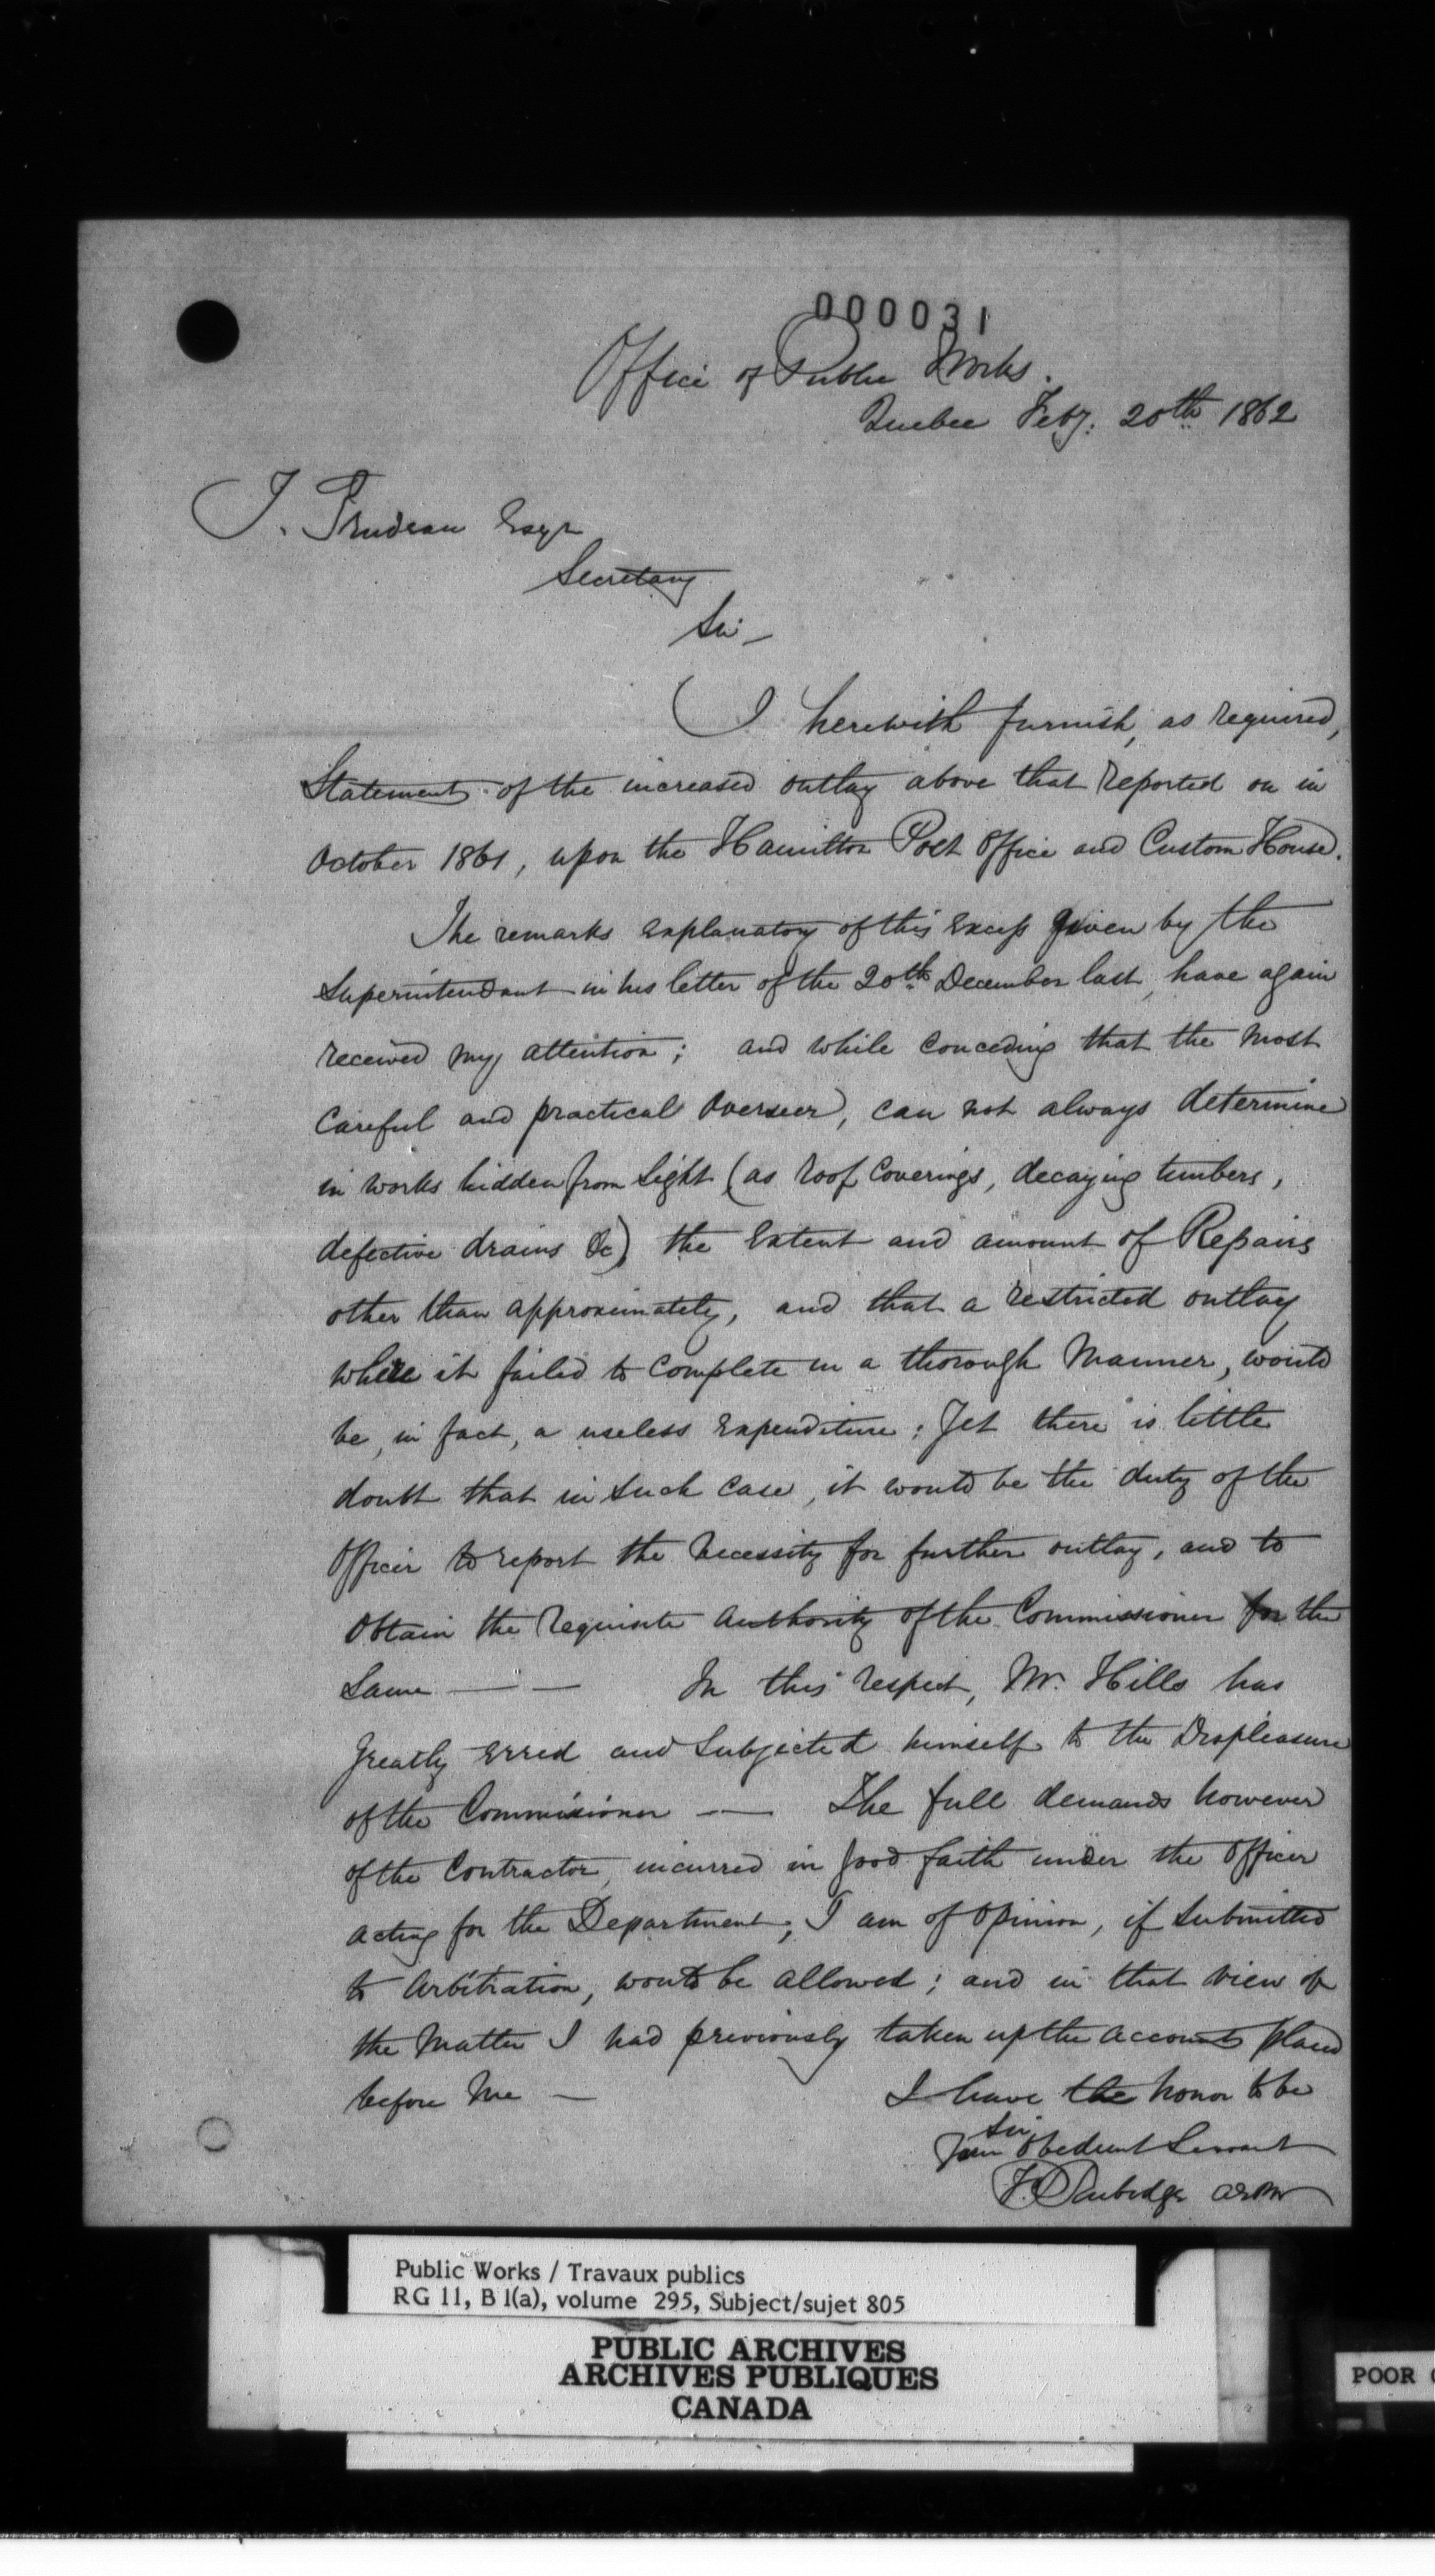 000031
Office of Public Works.
Quebec Feby. 20th 1862
T. Trudeau Esqr
Secretary
Sir —
I herewith furnish, as required,
Statement of the increased outlay above that reported on in
October 1861, upon the Hamilton Post Office and Custom House.
The remarks explanatory of this Excess given by the
Superintendant in his letter of the 20th December last, have again
received my attention; and while conceding that the most
Careful and practical Overseer, can not always determine
in works hidden from Sight (as roof Coverings, decaying timbers,
defective drains &c) the Extent and amount of Repairs
other than approximately, and that a restricted outlay
where it failed to Complete in a thorough Manner, would
be, in fact, a useless Expenditure; Yet there is little
doubt that in Such Case, it would be the duty of the
Officer to report the Necessity for further outlay, and to
Obtain the Requisite Authority of the Commissioner for the
Same — — In this respect, Mr. Hills has
Greatly Erred and Subjected himself to the Displeasure
of the Commissioner — — The full demands however
of the Contractor, incurred in good faith under the Officer
acting for the Department, I am of Opinion, if Submitted
to Arbitration, would be allowed; and in that view of
the Matter I had previously taken up the accounts placed
before Me —
I have the honor to be
Sir
Your Obedient Servant
F.
Public Works / Travaux publics
RG 11, B 1(a), volume 295, Subject/sujet 805
PUBLIC ARCHIVES
ARCHIVES PUBLIQUES
CANADA
POOR